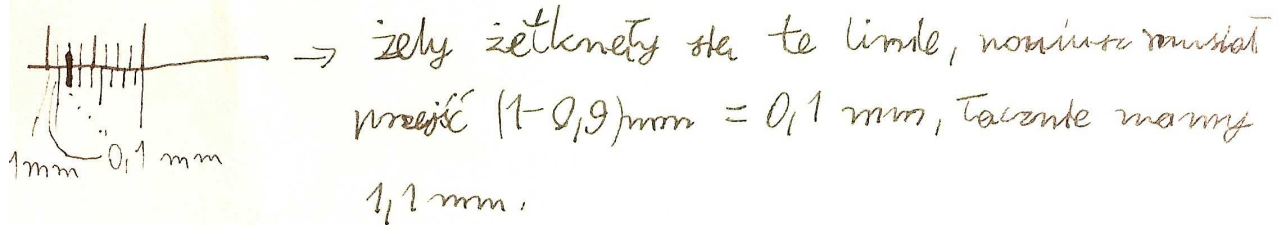 → żeby zetknęły się te linie, noniusz musiał
przejść (1-0,9)mm = 0,1 mm, łącznie mamy
1mm 0,1 mm
1,1 mm.